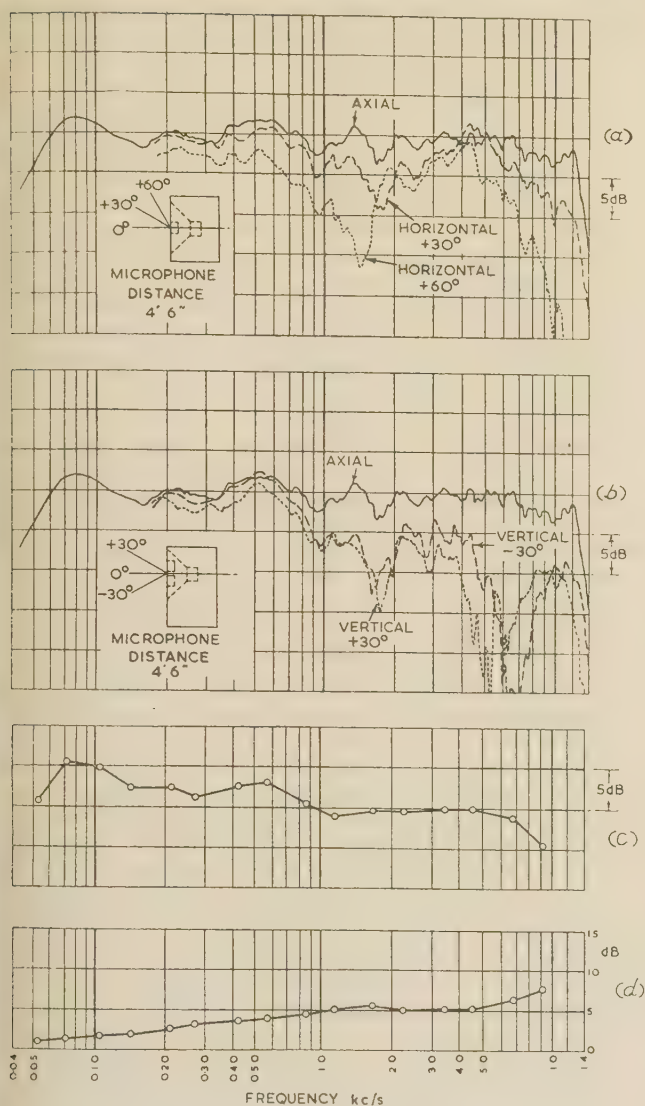 (a)
AXIAL
5dB
+60°
+30°
0°
HORIZONTAL
+30°
HORIZONTAL
+60°
MICROPHONE
DISTANCE
4' 6"
AXIAL
(b)
5dB
+30°
0°
-30°
VERTICAL
-30°
VERTICAL
+30°
MICROPHONE
DISTANCE
4' 6"
5dB
(c)
15
dB
10
(d)
5
0
0·04 0·05 0·1 0·2 0·3 0·4 0·50 1·0 2·0 3·0 4·0 5·0 10 14
FREQUENCY kc/s